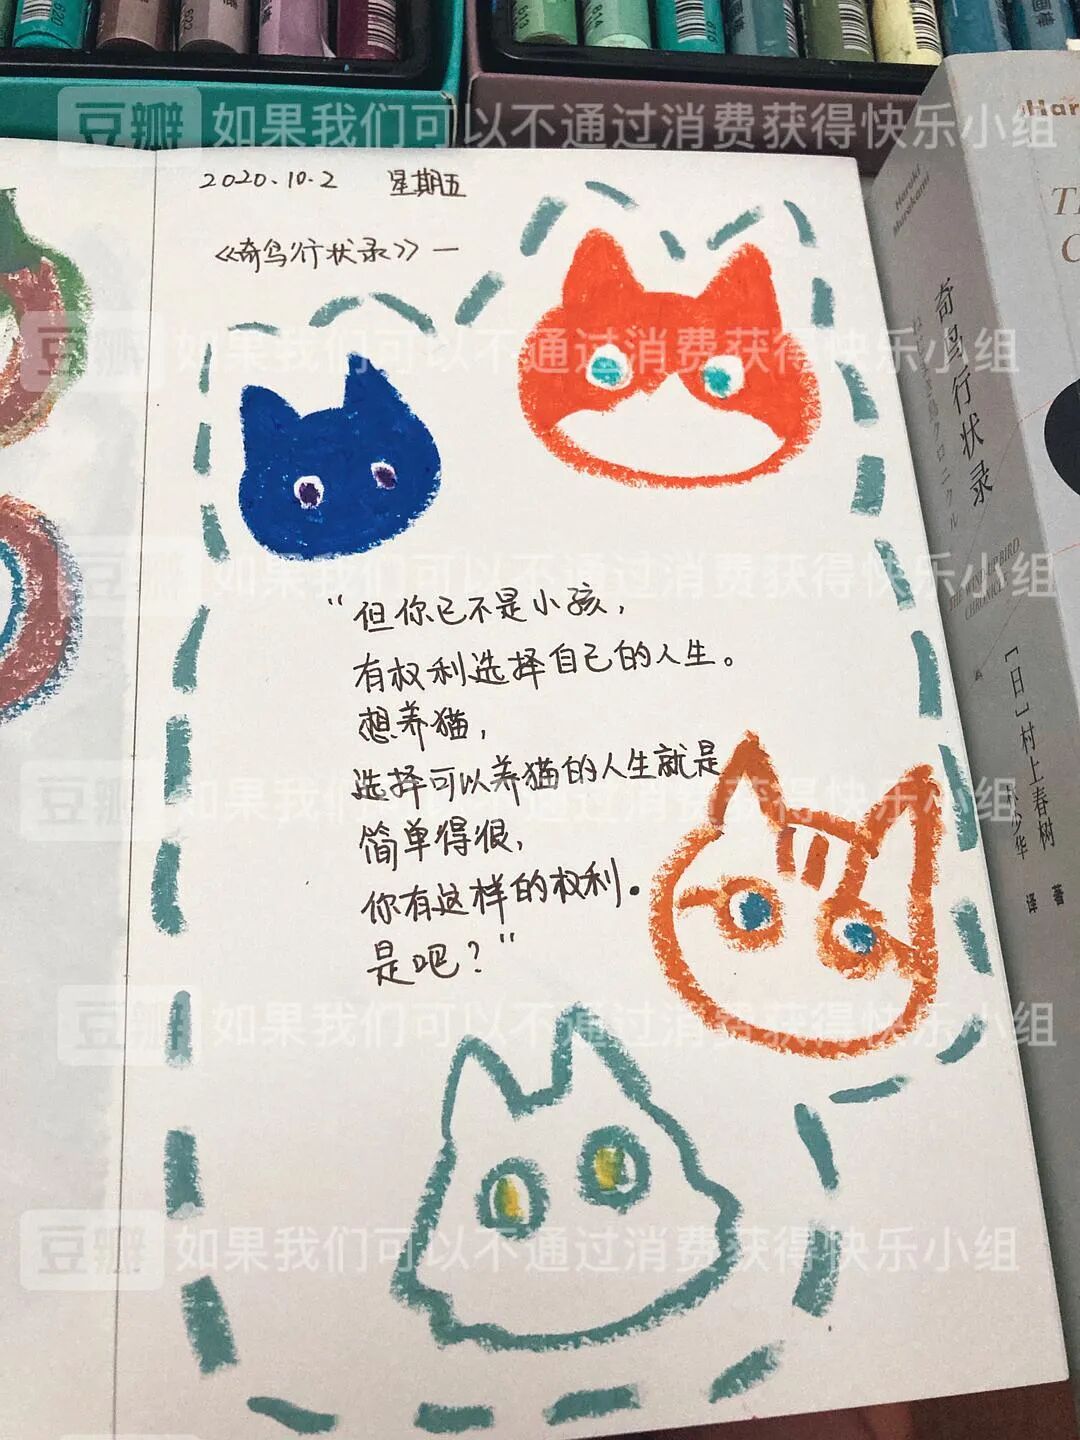 2020.10.2 星期五
《奇鸟行状录》一
“但你已不是小孩，
有权利选择自己的人生。
想养猫，
选择可以养猫的人生就是
简单得很，
你有这样的权利。
是吧？”
Haruki
Murakami
奇鸟行状录
THE WIND-UP BIRD
CHRONICLE
［日］村上春树 著
林少华 译
Har
豆瓣 如果我们可以不通过消费获得快乐小组
豆瓣 如果我们可以不通过消费获得快乐小组
豆瓣 如果我们可以不通过消费获得快乐小组
豆瓣 如果我们可以不通过消费获得快乐小组
豆瓣 如果我们可以不通过消费获得快乐小组
豆瓣 如果我们可以不通过消费获得快乐小组